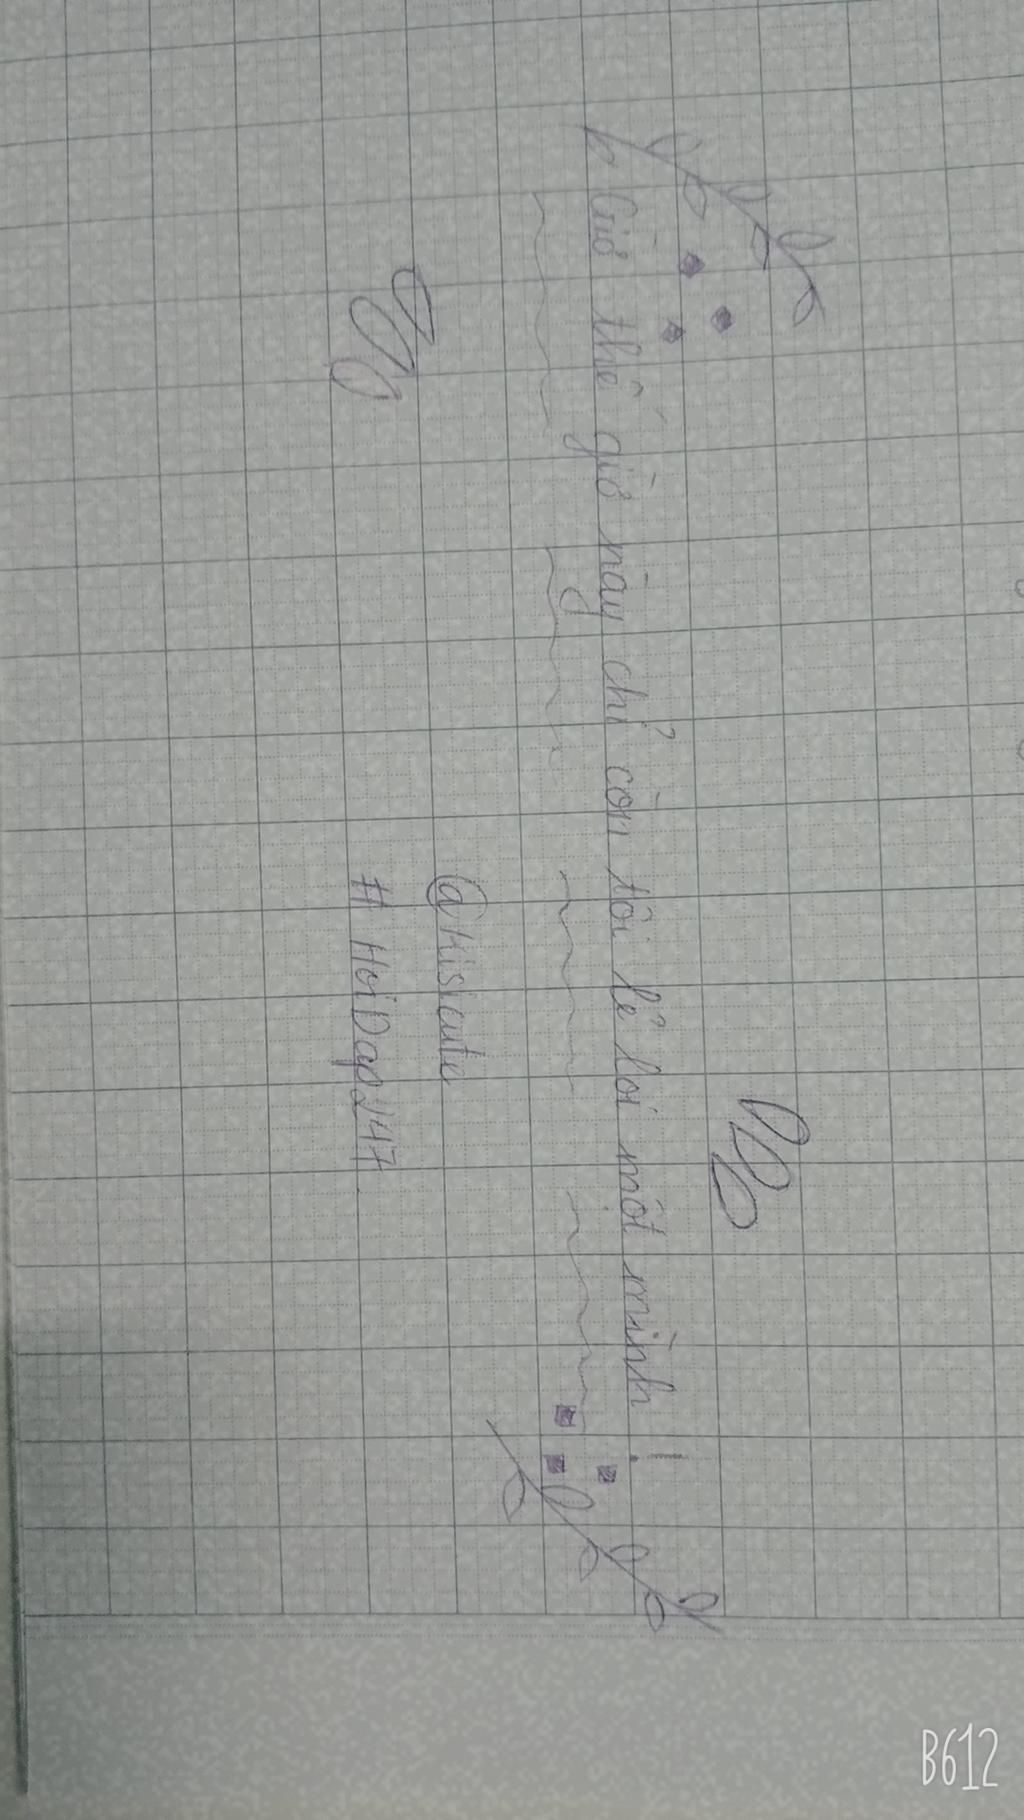 Giờ thế giờ này chỉ còn tôi lẻ loi một mình !
@Misicute
# HoiDap247
B612